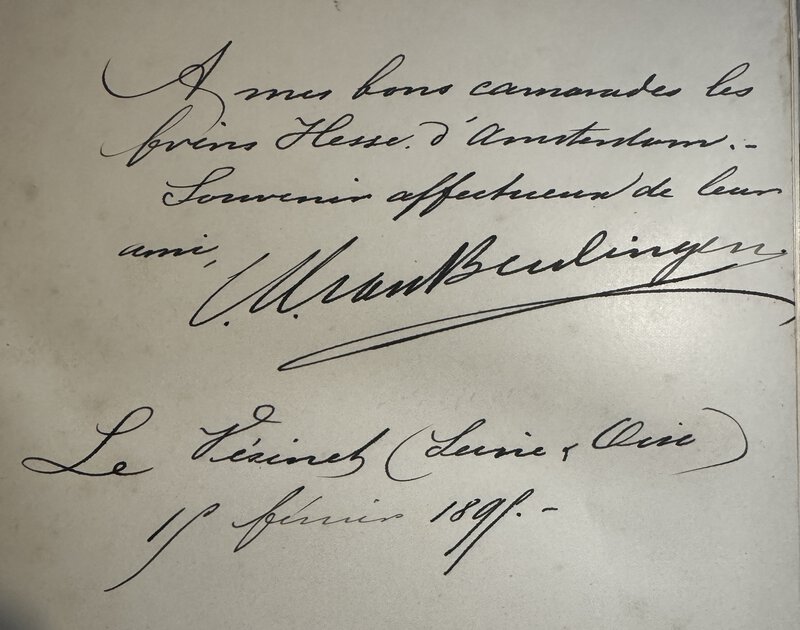 A mes bons camarades les
frères Hesse. d'Amsterdam. -
Souvenir affectueux de leur
ami,
M. van Beulingen.
Le Vésinet (Seine & Oise)
15 février 1895. -